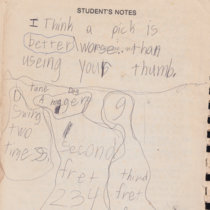 STUDENT'S NOTES
I Think a pick is
better worse than
useing your thumb.
D
Swing
two
time
g
second
fret
2 3 4
third
fret